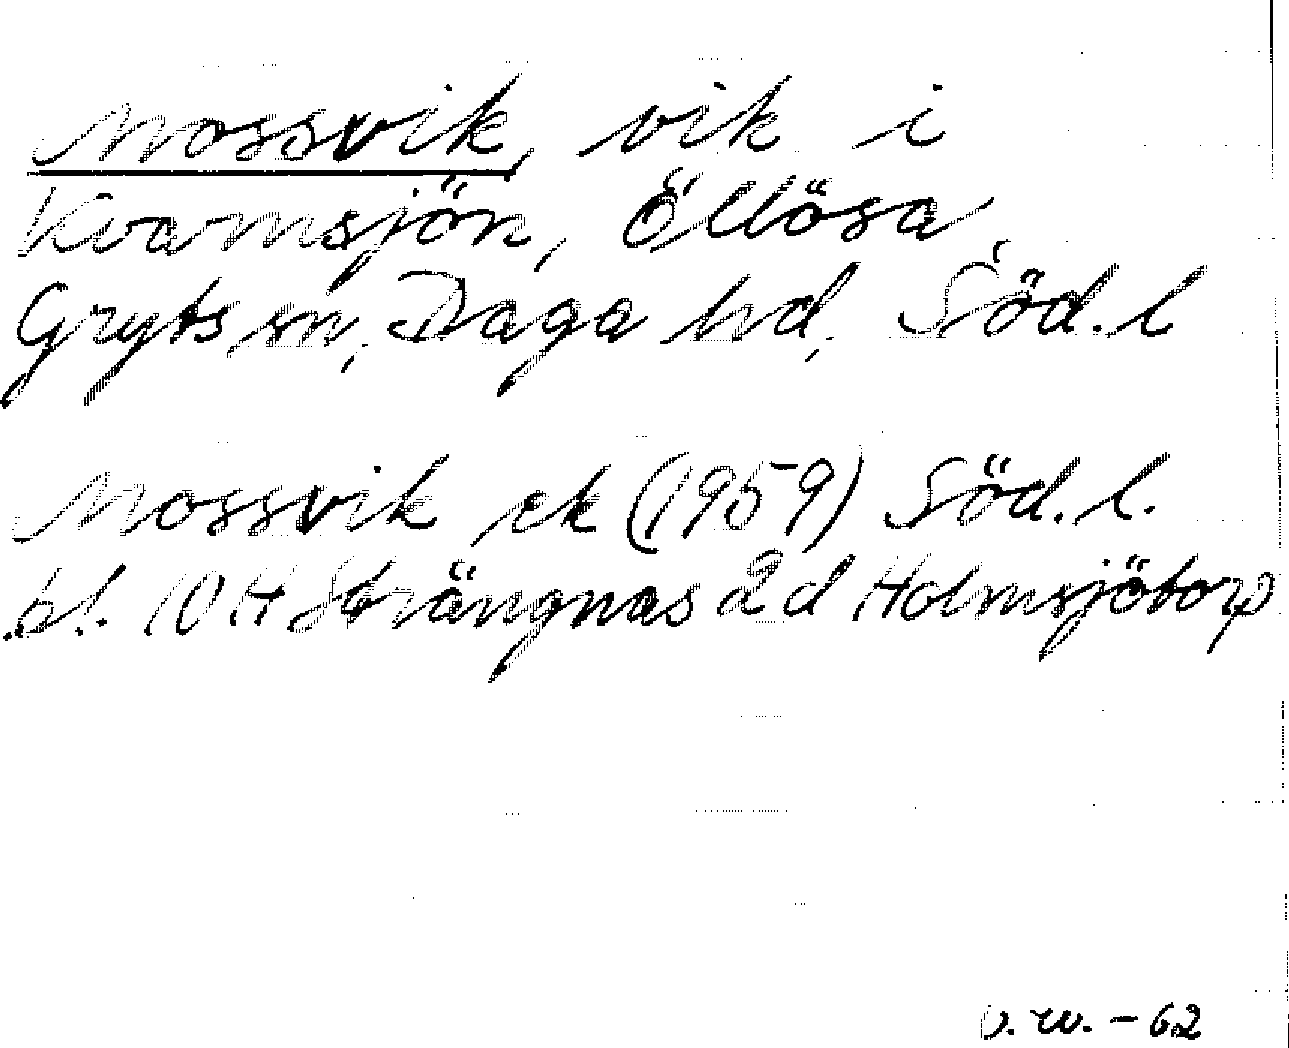 Mossvik, vik i
Kvarnsjön, Öllösa,
Gryts sn, Daga hd, Söd. l
Mossvik ek (1959) Söd. l.
bl. 10 H Strängnäs 2 d Holmsjötorp
V. W. - 62